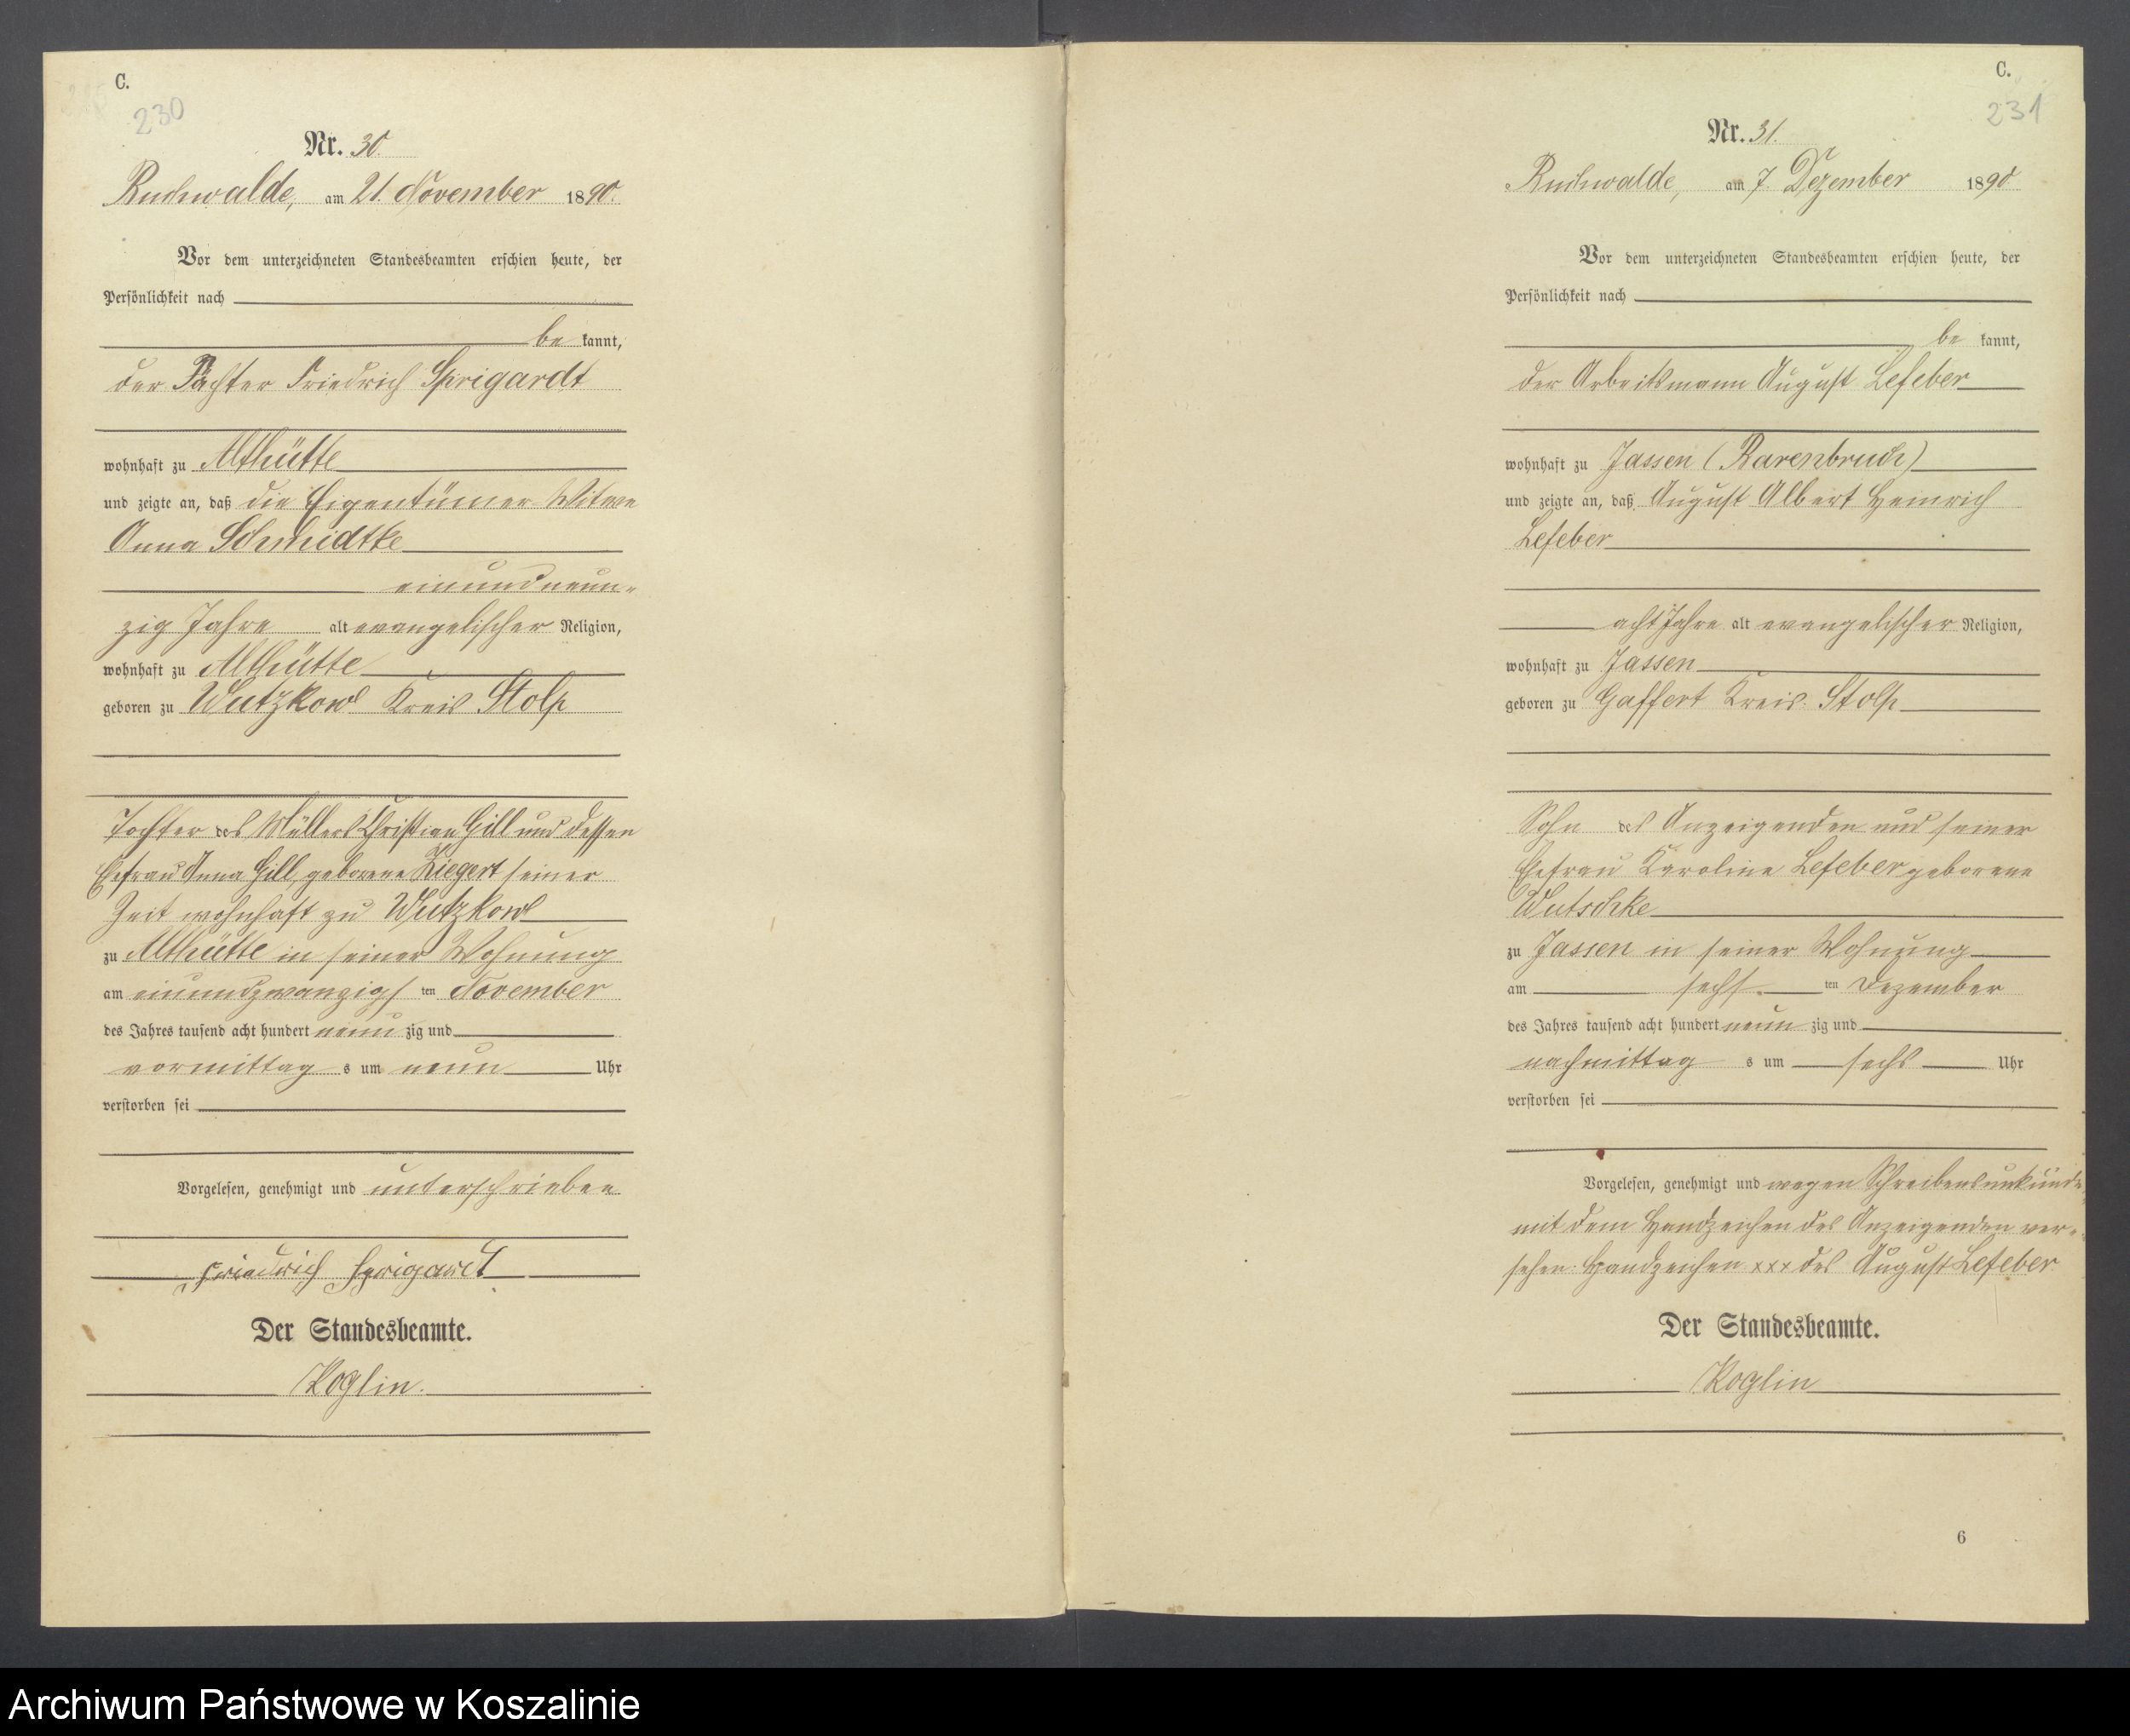 C.
230
Nr. 30.
Buchwalde, am 21. November 1890.
Vor dem unterzeichneten Standesbeamten erschien heute, der
Persönlichkeit nach
be kannt,
der Pächter Friedrich Sprigardt
wohnhaft zu Althütte
und zeigte an, daß die Eigentümer Witwe
Anna Schmidtke
einundneun-
zig Jahre alt evangelischer Religion,
wohnhaft zu Althütte
geboren zu Wutzkow Kreis Stolp
Tochter des Müllers Christian Gill und dessen
Ehefrau Anna Gill, geborene Ziegert seiner
Zeit wohnhaft zu Wutzkow
zu Althütte in seiner Wohnung
am einundzwanzigs ten November
des Jahres tausend acht hundert neun zig und
vormittag s um neun Uhr
verstorben sei
Vorgelesen, genehmigt und unterschrieben
Friedrich Sprigardt
Der Standesbeamte.
Koglin.
C.
231
Nr. 31.
Buchwalde, am 7. Dezember 1890
Vor dem unterzeichneten Standesbeamten erschien heute, der
Persönlichkeit nach
be kannt,
der Arbeitsmann August Lefeber
wohnhaft zu Jassen (Barenbruch)
und zeigte an, daß August Albert Heinrich
Lefeber
acht Jahre alt evangelischer Religion,
wohnhaft zu Jassen
geboren zu Gaffert Kreis Stolp
Sohn des Anzeigenden und seiner
Ehefrau Karoline Lefeber geborene
Wutschke
zu Jassen in seiner Wohnung
am sechs ten Dezember
des Jahres tausend acht hundert neun zig und
nachmittag s um sechs Uhr
verstorben sei
Vorgelesen, genehmigt und wegen Schreibensunkunde
mit dem Handzeichen des Anzeigenden ver-
sehen: Handzeichen xxx des August Lefeber
Der Standesbeamte.
Koglin
6
Archiwum Państwowe w Koszalinie